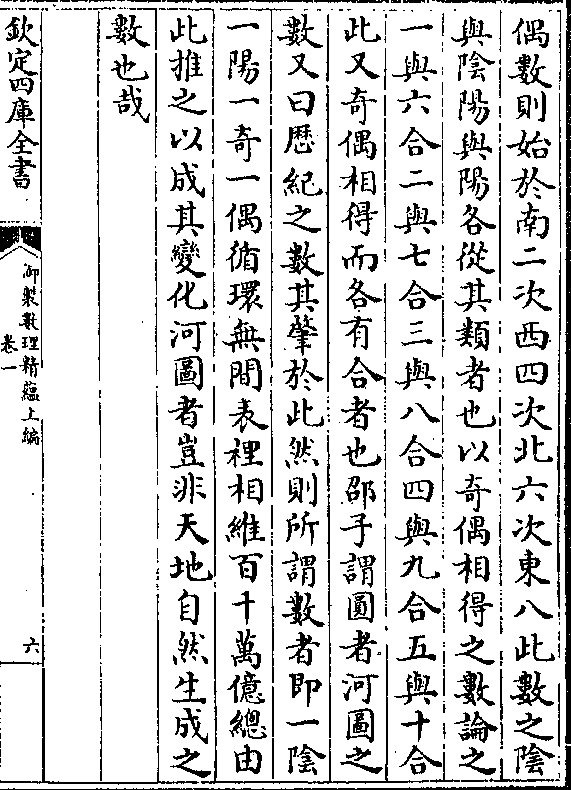 偶數則始於南二次西四次北六次東八此數之陰
與陰陽與陽各從其類者也以奇偶相得之數論之
一與六合二與七合三與八合四與九合五與十合
此又奇偶相得而各有合者也邵子謂圓者河圖之
數又曰厯紀之數其肇於此然則所謂數者即一陰
一陽一奇一偶循環無間表裡相維百十萬億總由
此推之以成其變化河圖者豈非天地自然生成之
數也哉
欽定四庫全書
御製數理精藴上編
卷一
六